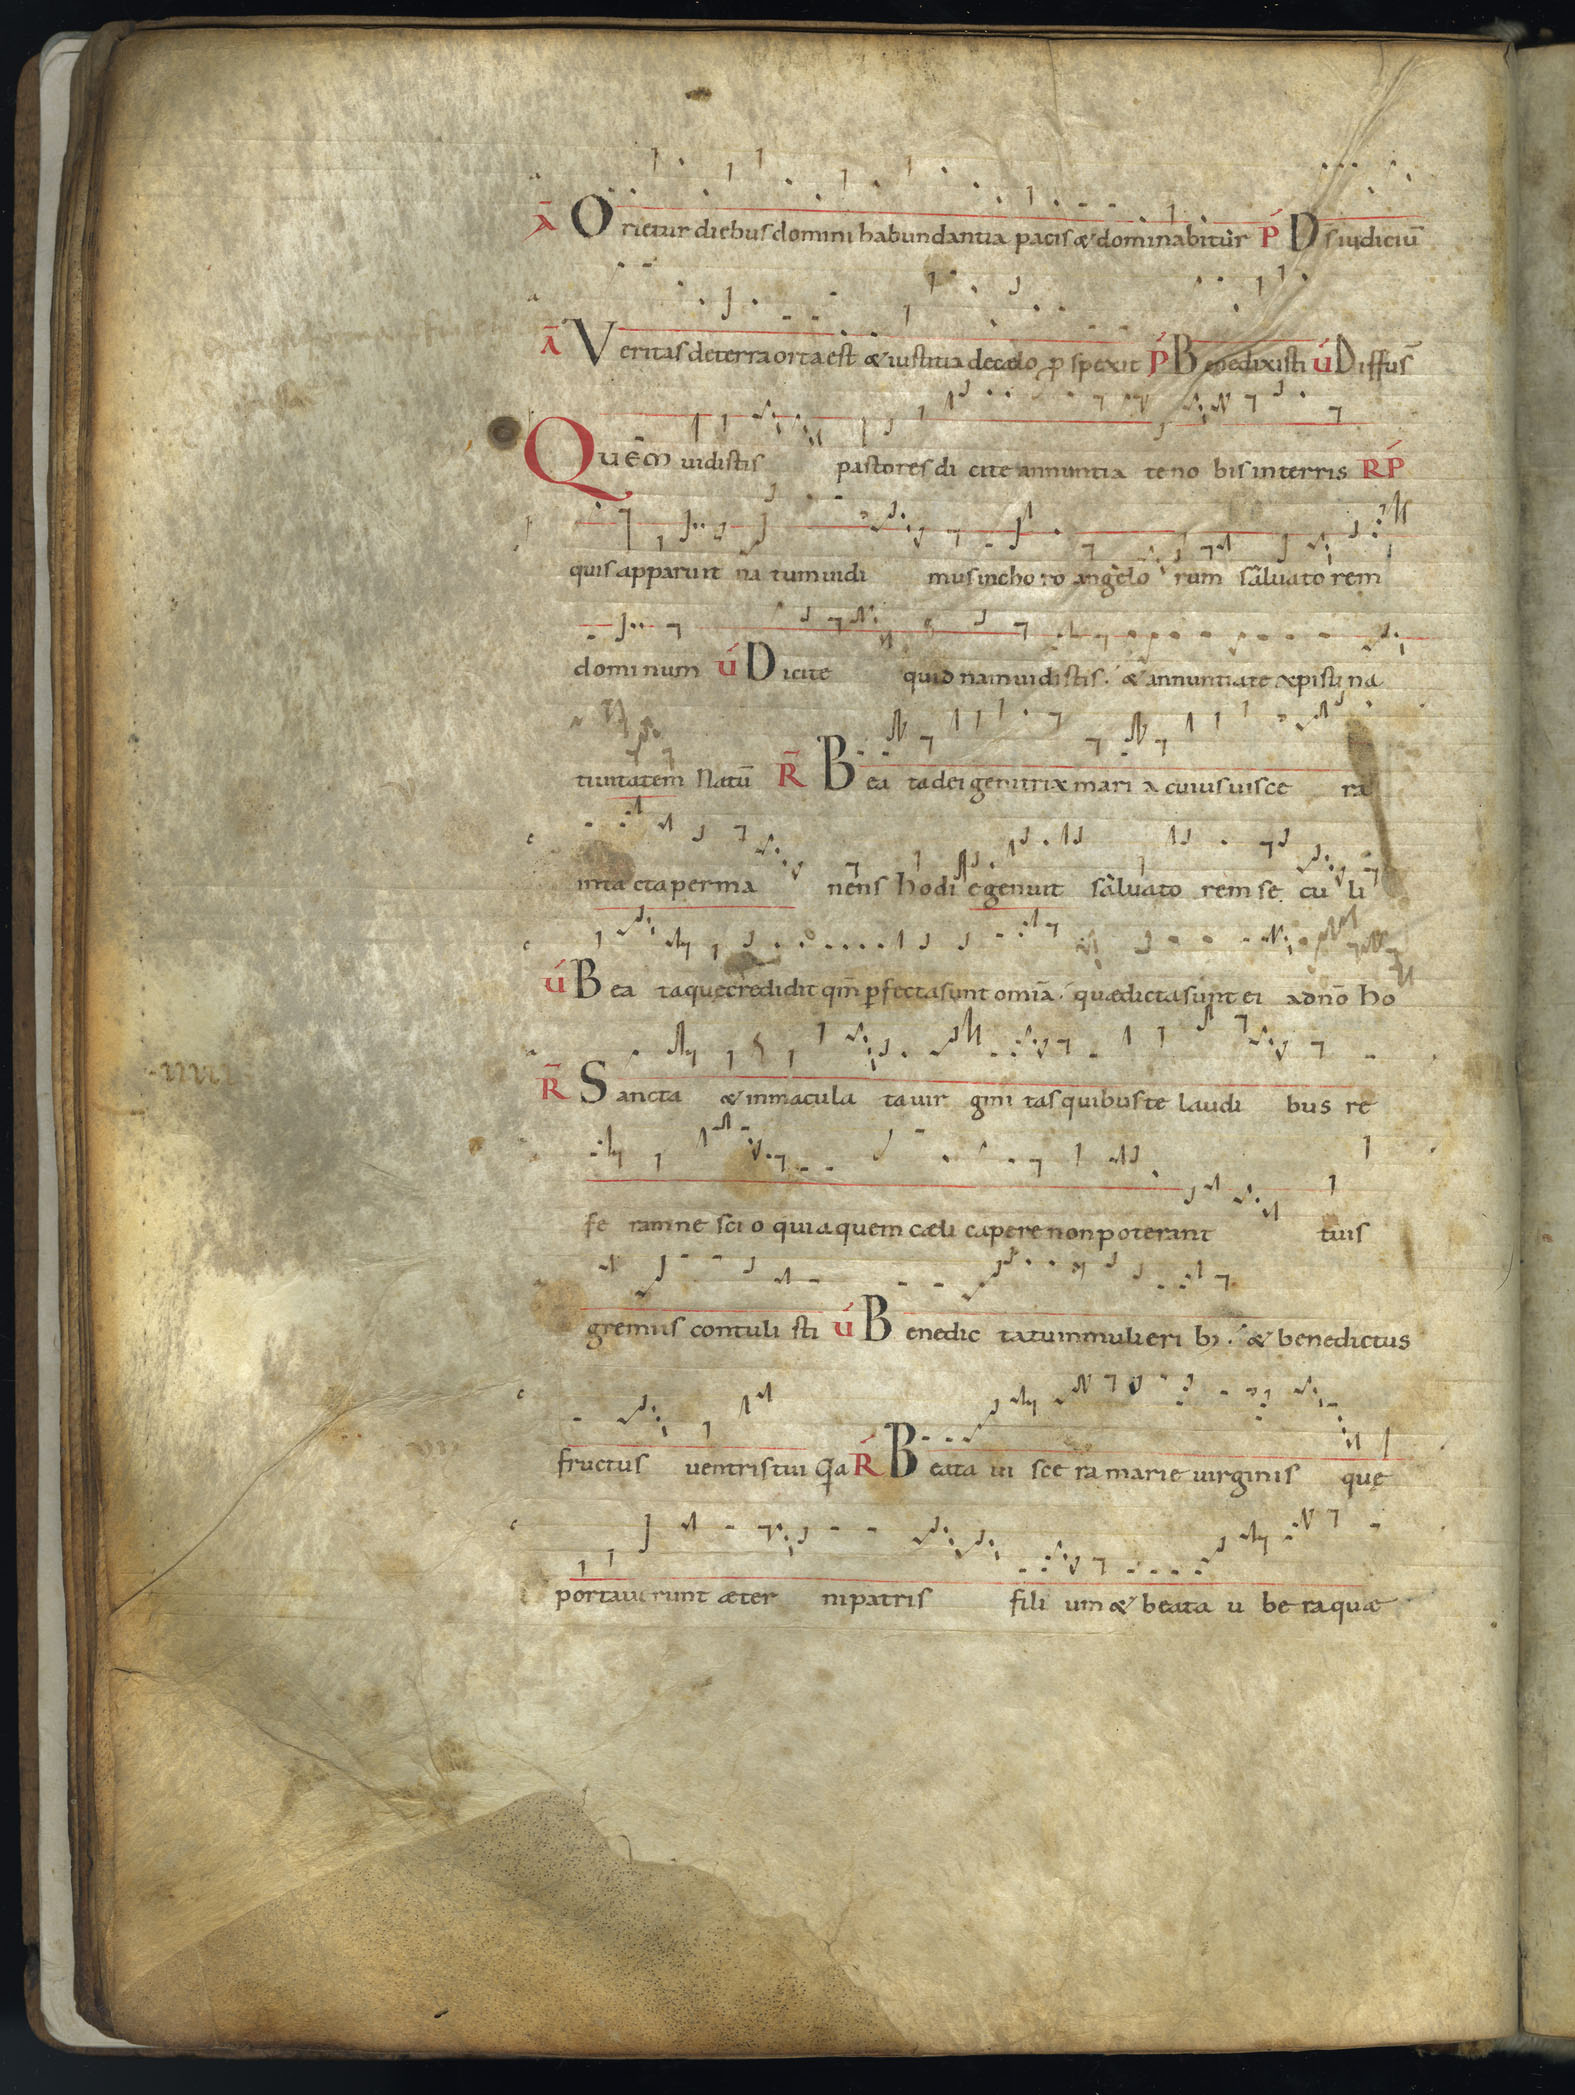 Ā Orietur diebus domini habundantia pacis & dominabitur P̄ Ds iudiciū
Ā Veritas deterra orta est & iustitia decelo p spexit P̄ Benedixisti V́ Diffus̄
Quē̄m uidistis pastores di cite annuntia te no bis interris RP̄
quis apparuit na tum uidi mus incho ro angelo rum saluato rem
dominum V́ Dicite quid nam uidistis. & annuntiate xpisti na
tiuitatem Natū R̄ Bea ta dei genitrix mari a cuius uisce ra
inta cta perma nens hodi e genuit saluato rem se cu li
V́ Bea ta que credidit qm̄ pfecta sunt omīa. quædicta sunt ei adnō ho
R̄ Sancta & inmacula ta uir gini tas quibus te laudi bus re
fe ram ne sci o quia quem cæli capere non poterant tuis
gremiis contuli sti V́ Benedic ta tu in mulieri b;. & benedictus
fructus uentris tui Qa Ŕ Beata ui sce ra marie uirginis quę
portauerunt æter ni patris fili um & beata u be ra quæ